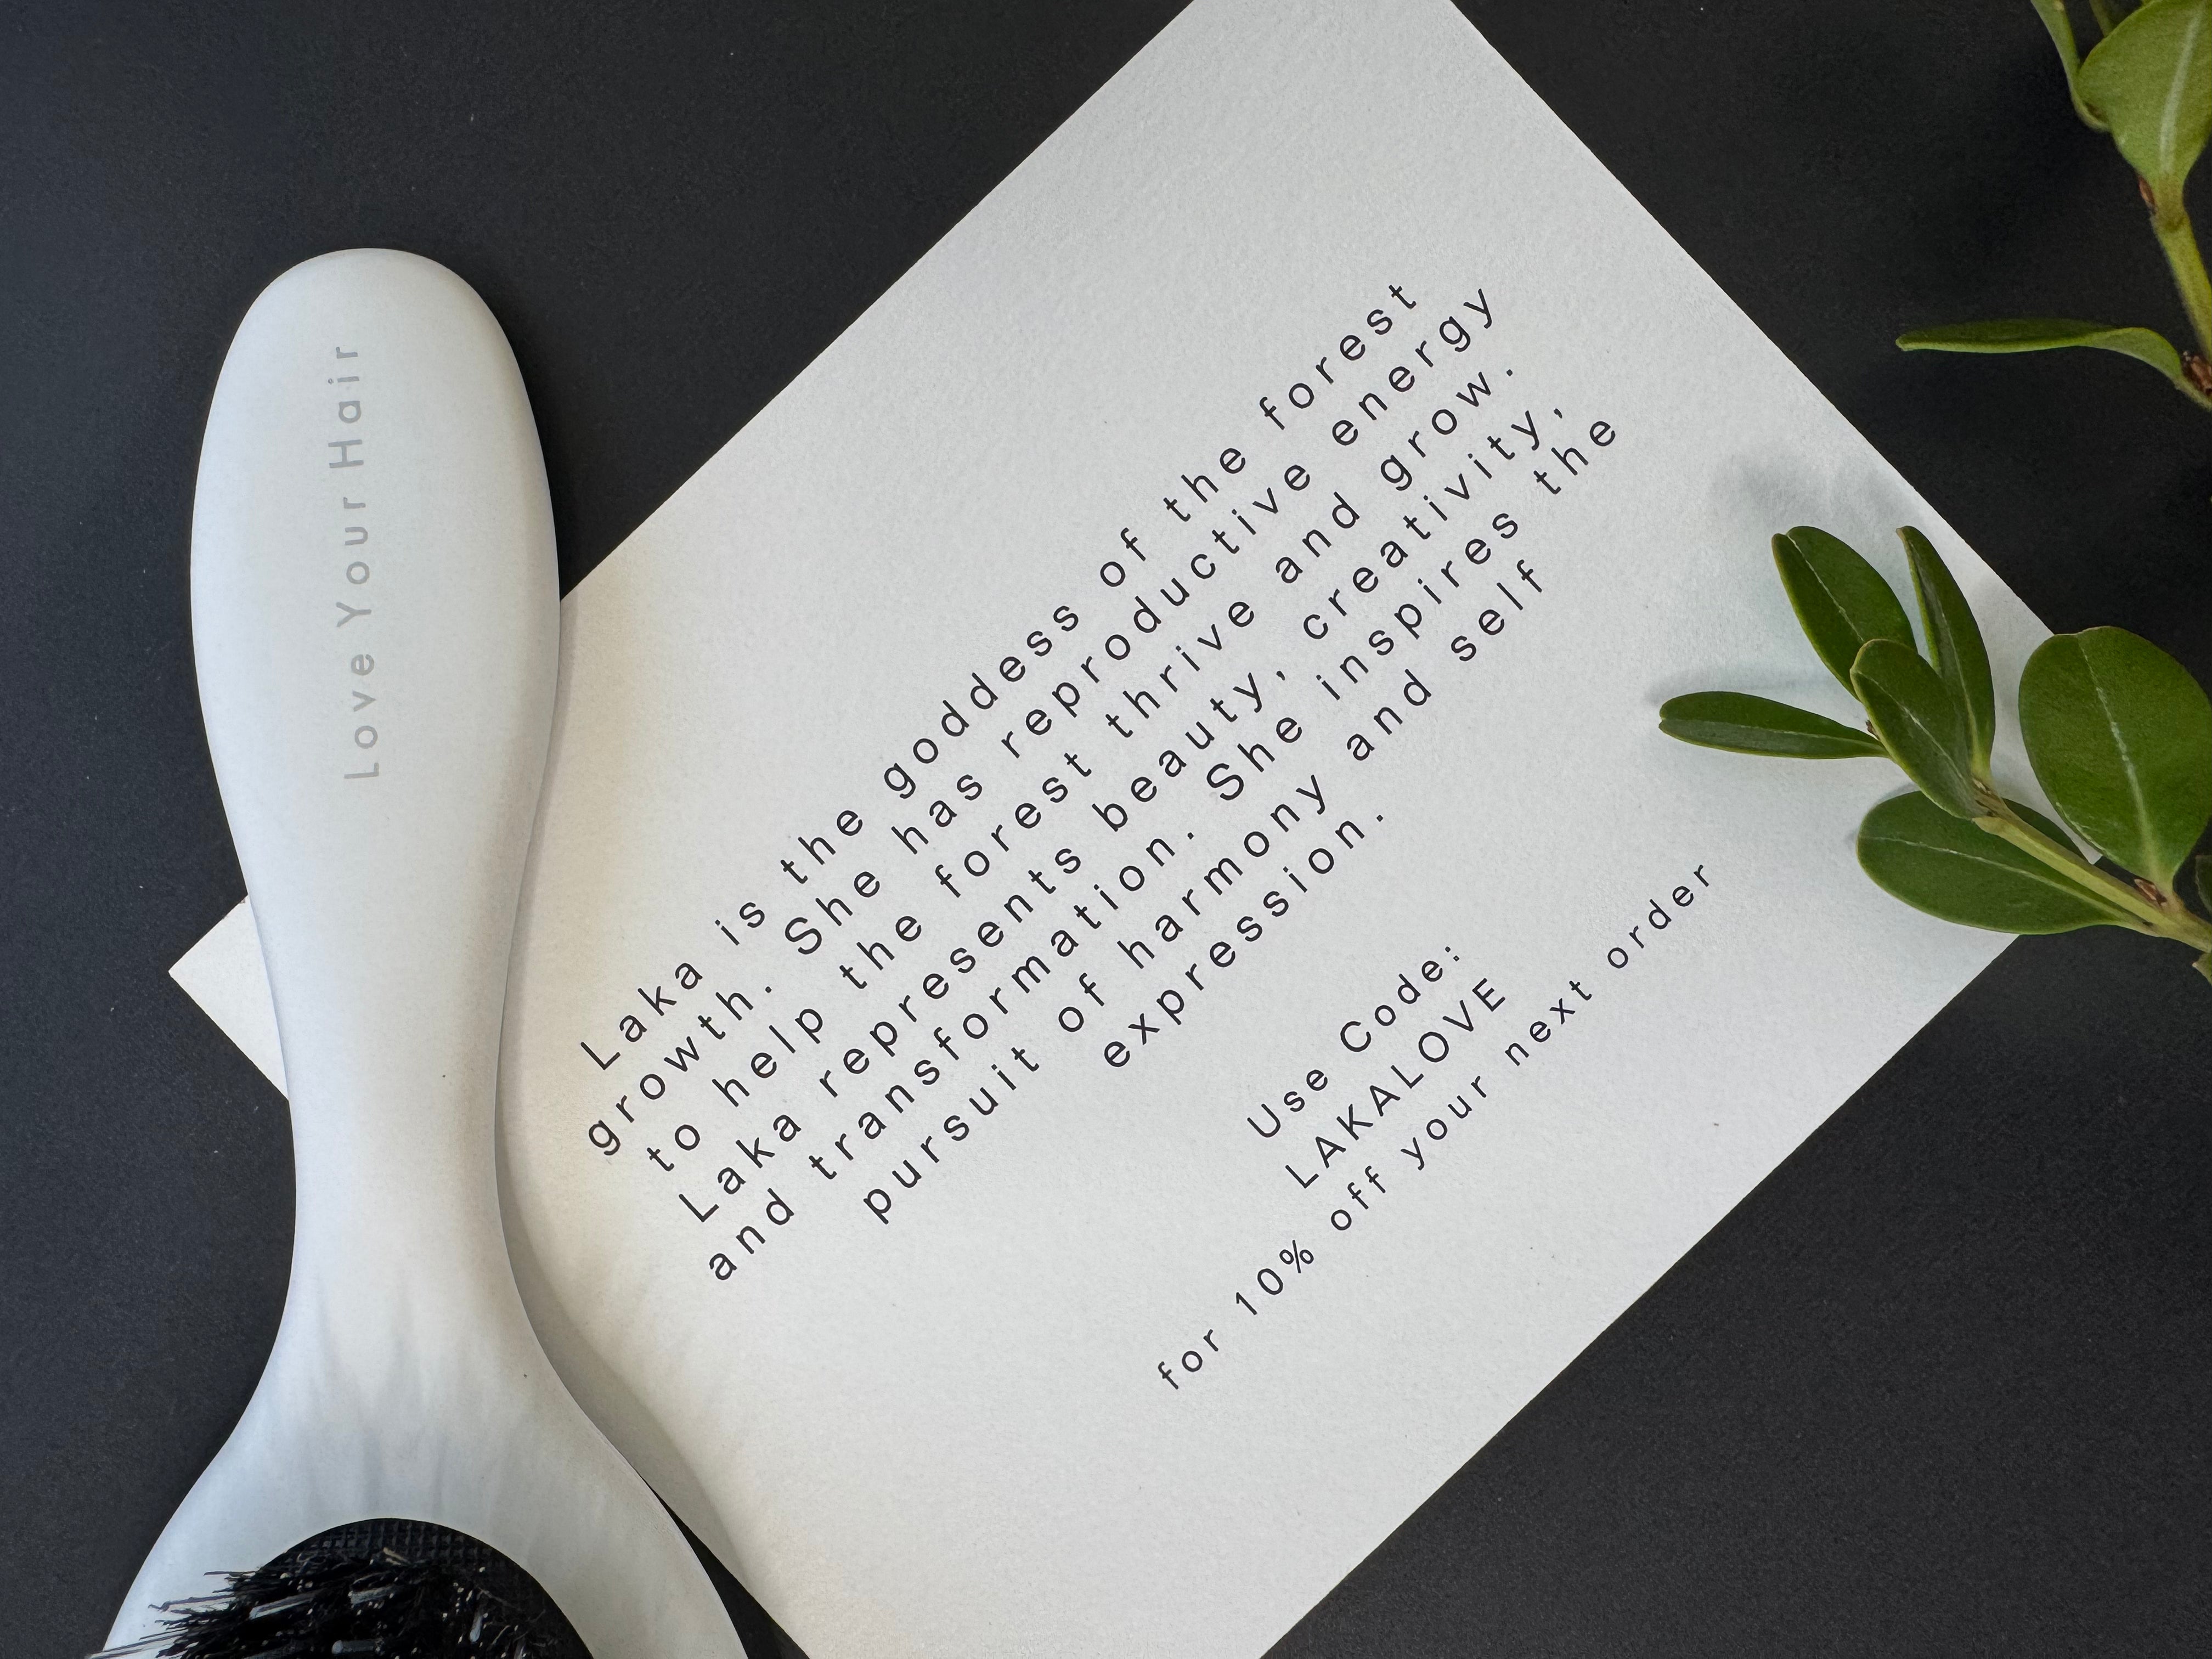 Love Your Hair
Laka is the goddess of the forest
growth. She has reproductive energy
to help the forest thrive and grow.
Laka represents beauty, creativity,
and transformation. She inspires the
pursuit of harmony and self
expression.
Use Code:
LAKALOVE
for 10% off your next order